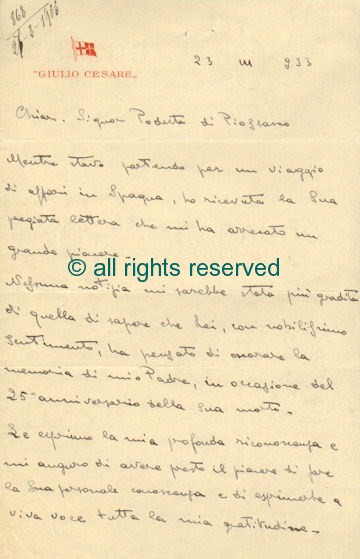 868
28-3-1933
"GIULIO CESARE"
23 III 933
Chiar. Signor Podestà di Piossasco
Mentre stavo partendo per un viaggio
di affari in Spagna, ho ricevuto la Sua
pregiata lettera che mi ha arrecato un
grande piacere.
© all rights reserved
Nessuna notizia mi sarebbe stata più gradita
di quella di sapere che Lei, con nobilissimo
sentimento, ha pensato di onorare la
memoria di mio Padre, in occasione del
25° anniversario della Sua morte.
Le esprimo la mia profonda riconoscenza e
mi auguro di avere presto il piacere di fare
la Sua personale conoscenza e di esprimerle a
viva voce tutta la mia gratitudine.